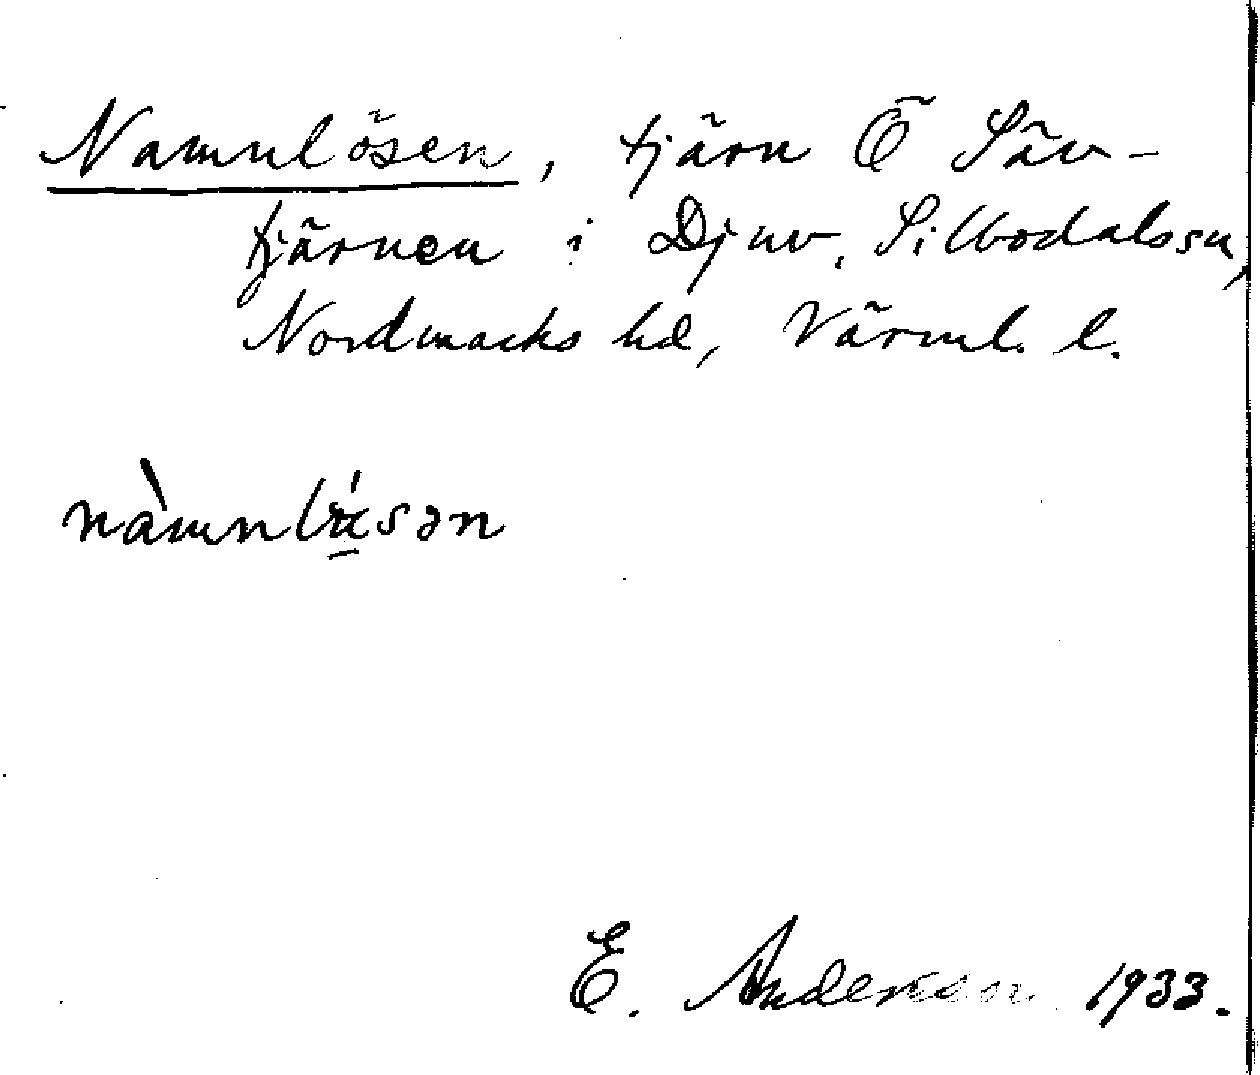 Namnlösen, tjärn Ö Säv-
tjärnen i Djuv, Silbodals sn,
Nordmarks hd, Värml. l.
E. Anderson 1933.